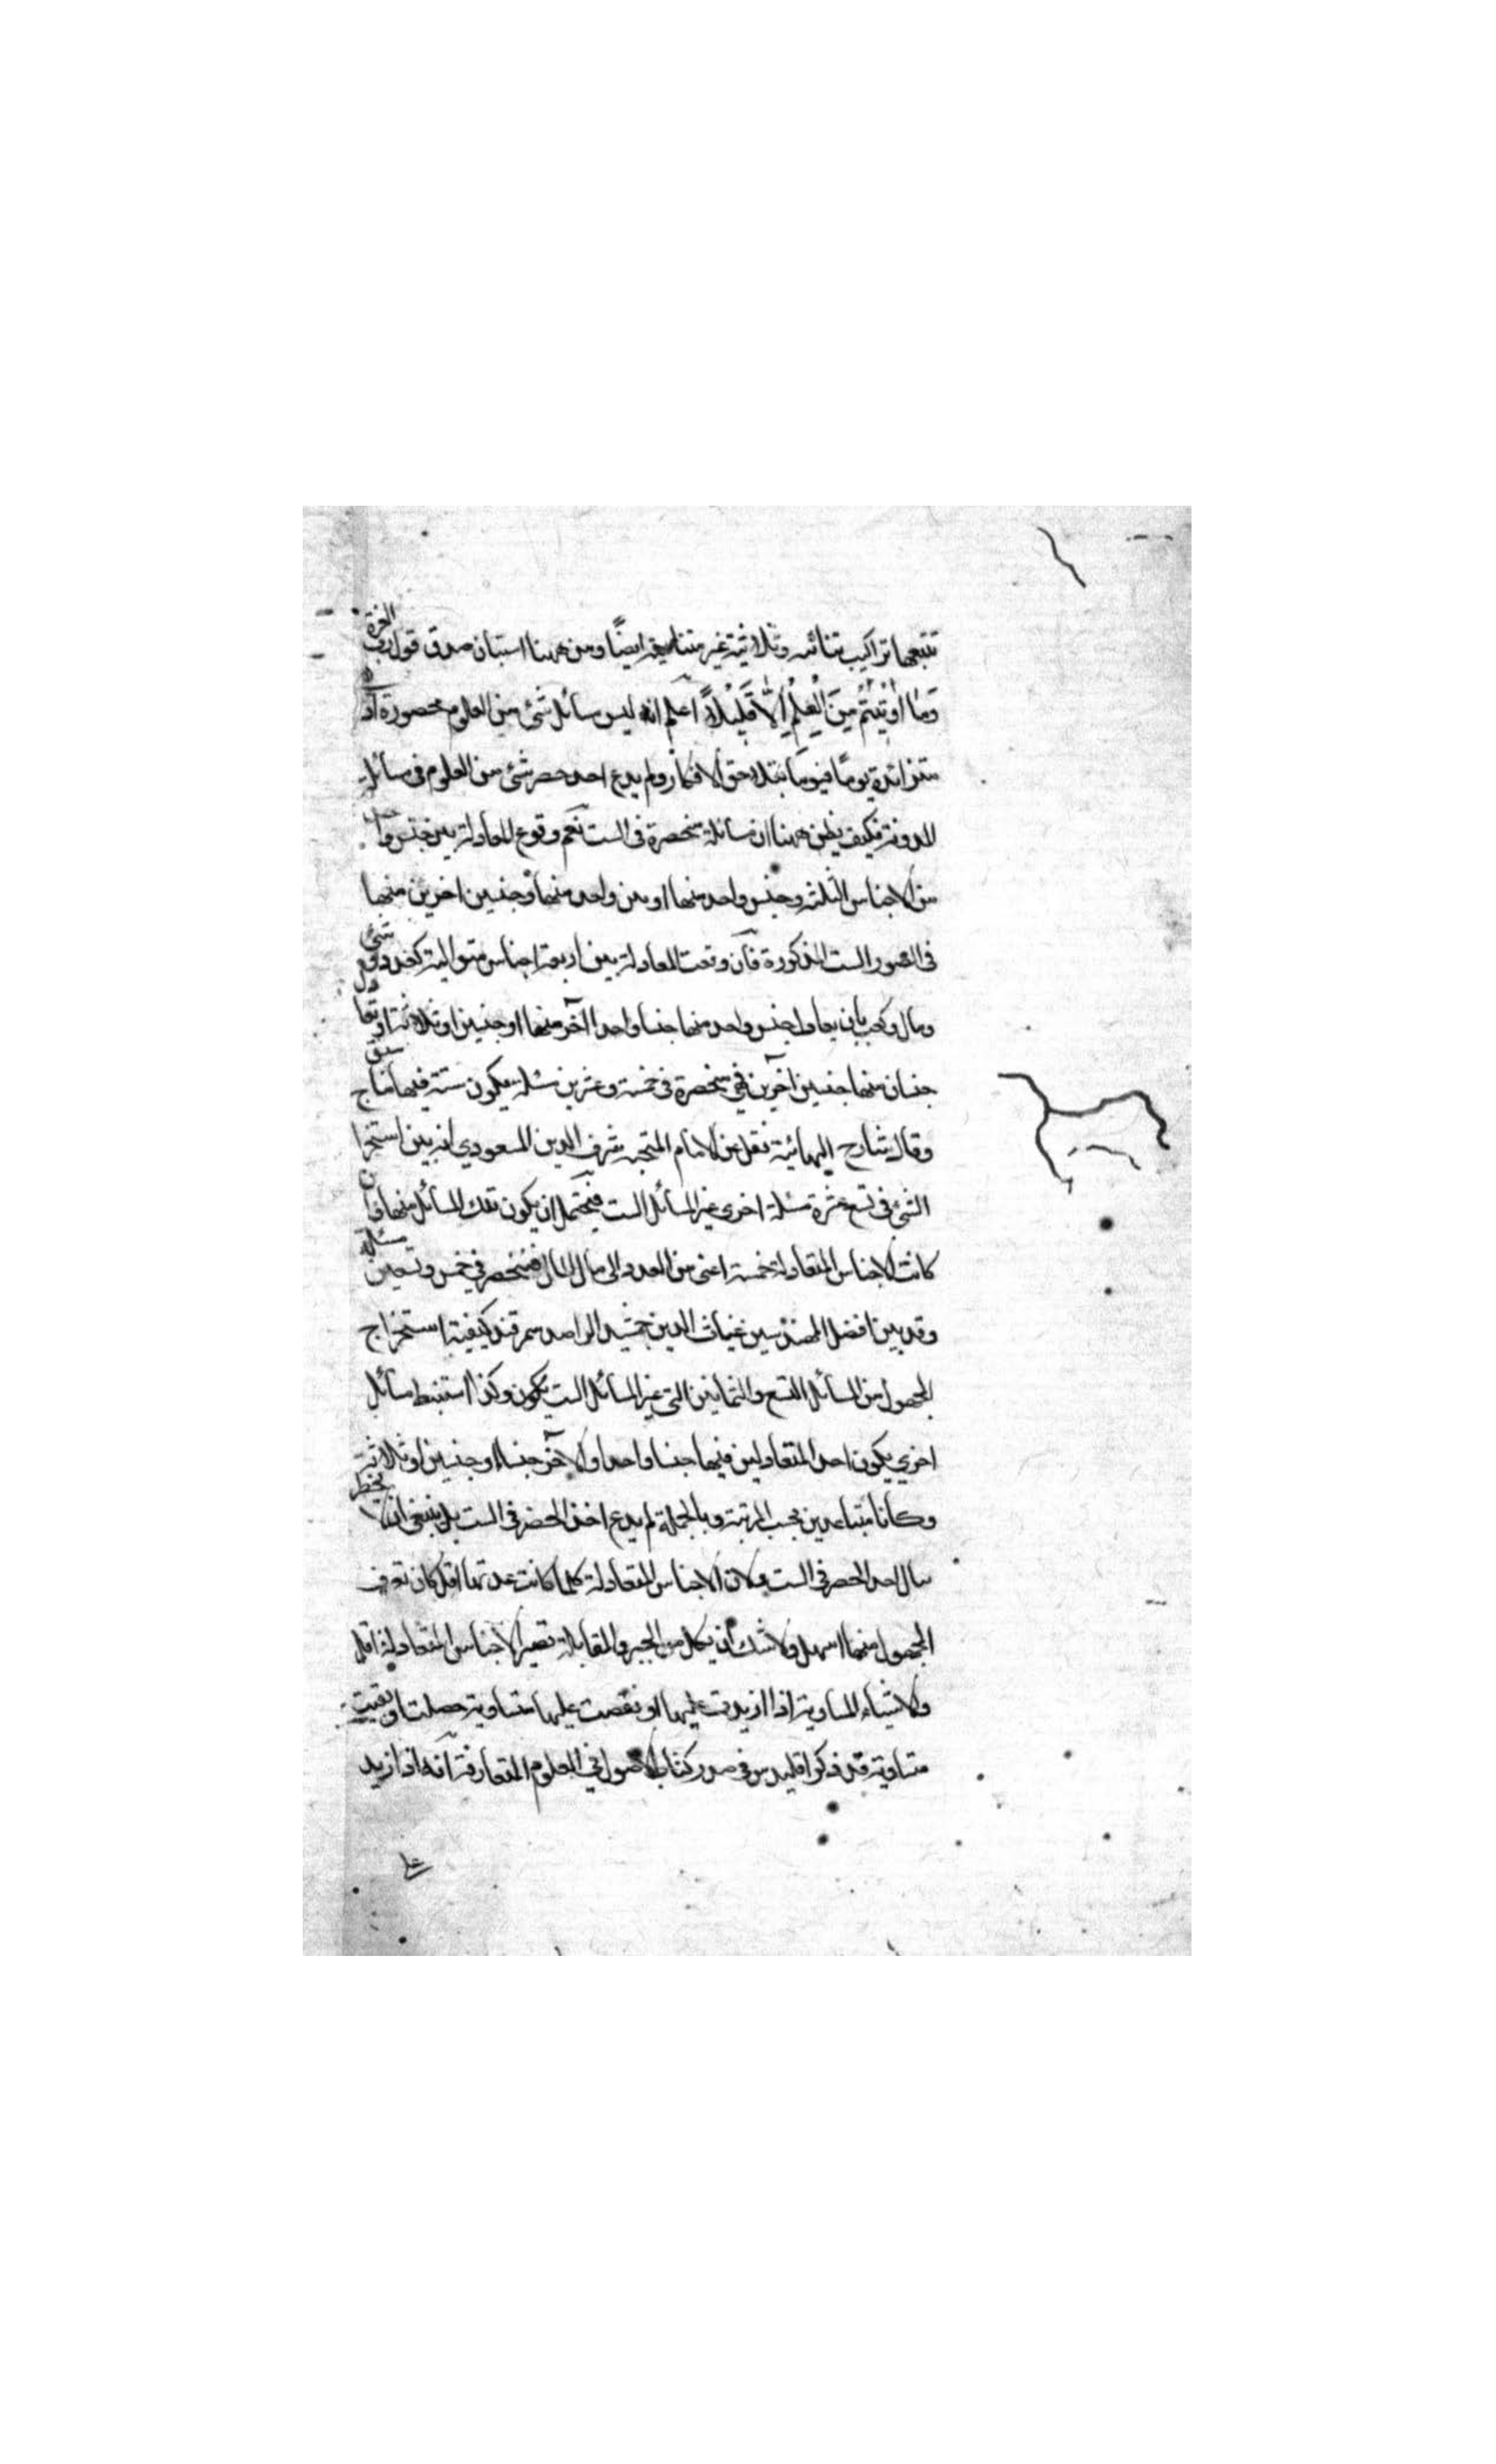 تتبعها تراكيب ثنائية وثلاثية غير متناهية ايضًا ومن ههنا استبان صدق قول رب العزة
وَمٰا اُوْتِيْتُمْ مِنَ الْعِلْمِ اِلّٰا قَلِيْلًا اعلم انه ليس مسائل شئ من العلوم محصورة اذ
متزائدة يومًا فيومًا بتلاحق الافكار ولم يدع احد حصر شئ من العلوم فى مسائله
المدونة فكيف يظن ههنا ان مسائله منحصرة فى الست نعم وقوع المعادلة بين جنس واحد
من الاجناس الثلثه وجنس واحد منها او بين واحد منها وجنسين اخرين منها
فى الصور الست المذكورة فان وقعت المعادلة بين اربعة اجناس متوالية كعدد وشئ
ومال وكعب بان يعادل جنس واحد منها جنسا واحدا آخر منها او جنسين او ثلاثة او تعادل
جنسان منها جنسين آخرين فهى منحصرة فى خمسة وعشرين مسئلة يكون ستة فيها ما سبق
وقال شارح البهائية نقل عن الامام المتجر شرف الدين المسعودي انه بين استخراج
الشئ فى تسع عشرة مسئلة اخرى غير المسائل الست فيحتمل ان يكون تلك المسائل منها فان
كانت الاجناس المتعادلة خمسة اعنى من العدد الى مال المال فينحصر في خمس وتسعين مسئلة
وقد بين افضل المهندسين غياث الدين جمشيد الراصد سمرقند كيفية استخراج
المجهول من المسائل التسع والثمانين التى غير المسائل الست يكون وكذا استنبط مسائل
اخري يكون احد المتعادلين فيها جنسا واحدا والآخر جنسا او جنسين او ثلاثة
وكانا متباعدين بحسب المرتبة وبالجملة لم يدع احد الحصر فى الست بل ينبغى ان لا يخطر
ببال احد الحصر فى الست ولان الاجناس المتعادلة كلما كانت عدتها اقل كان تعرف
المجهول منها اسهل ولا شك ان بكل من الجبر والمقابلة تصير الاجناس المتعادلة اقل
والاشياء المساوية اذا ازيدت عليها او نقصت عليها متساوية حصلت او بقيت
متساوية قد ذكر اقليدس فى صدر كتاب الاصول في العلوم المتعارفة انه اذا زيد
على